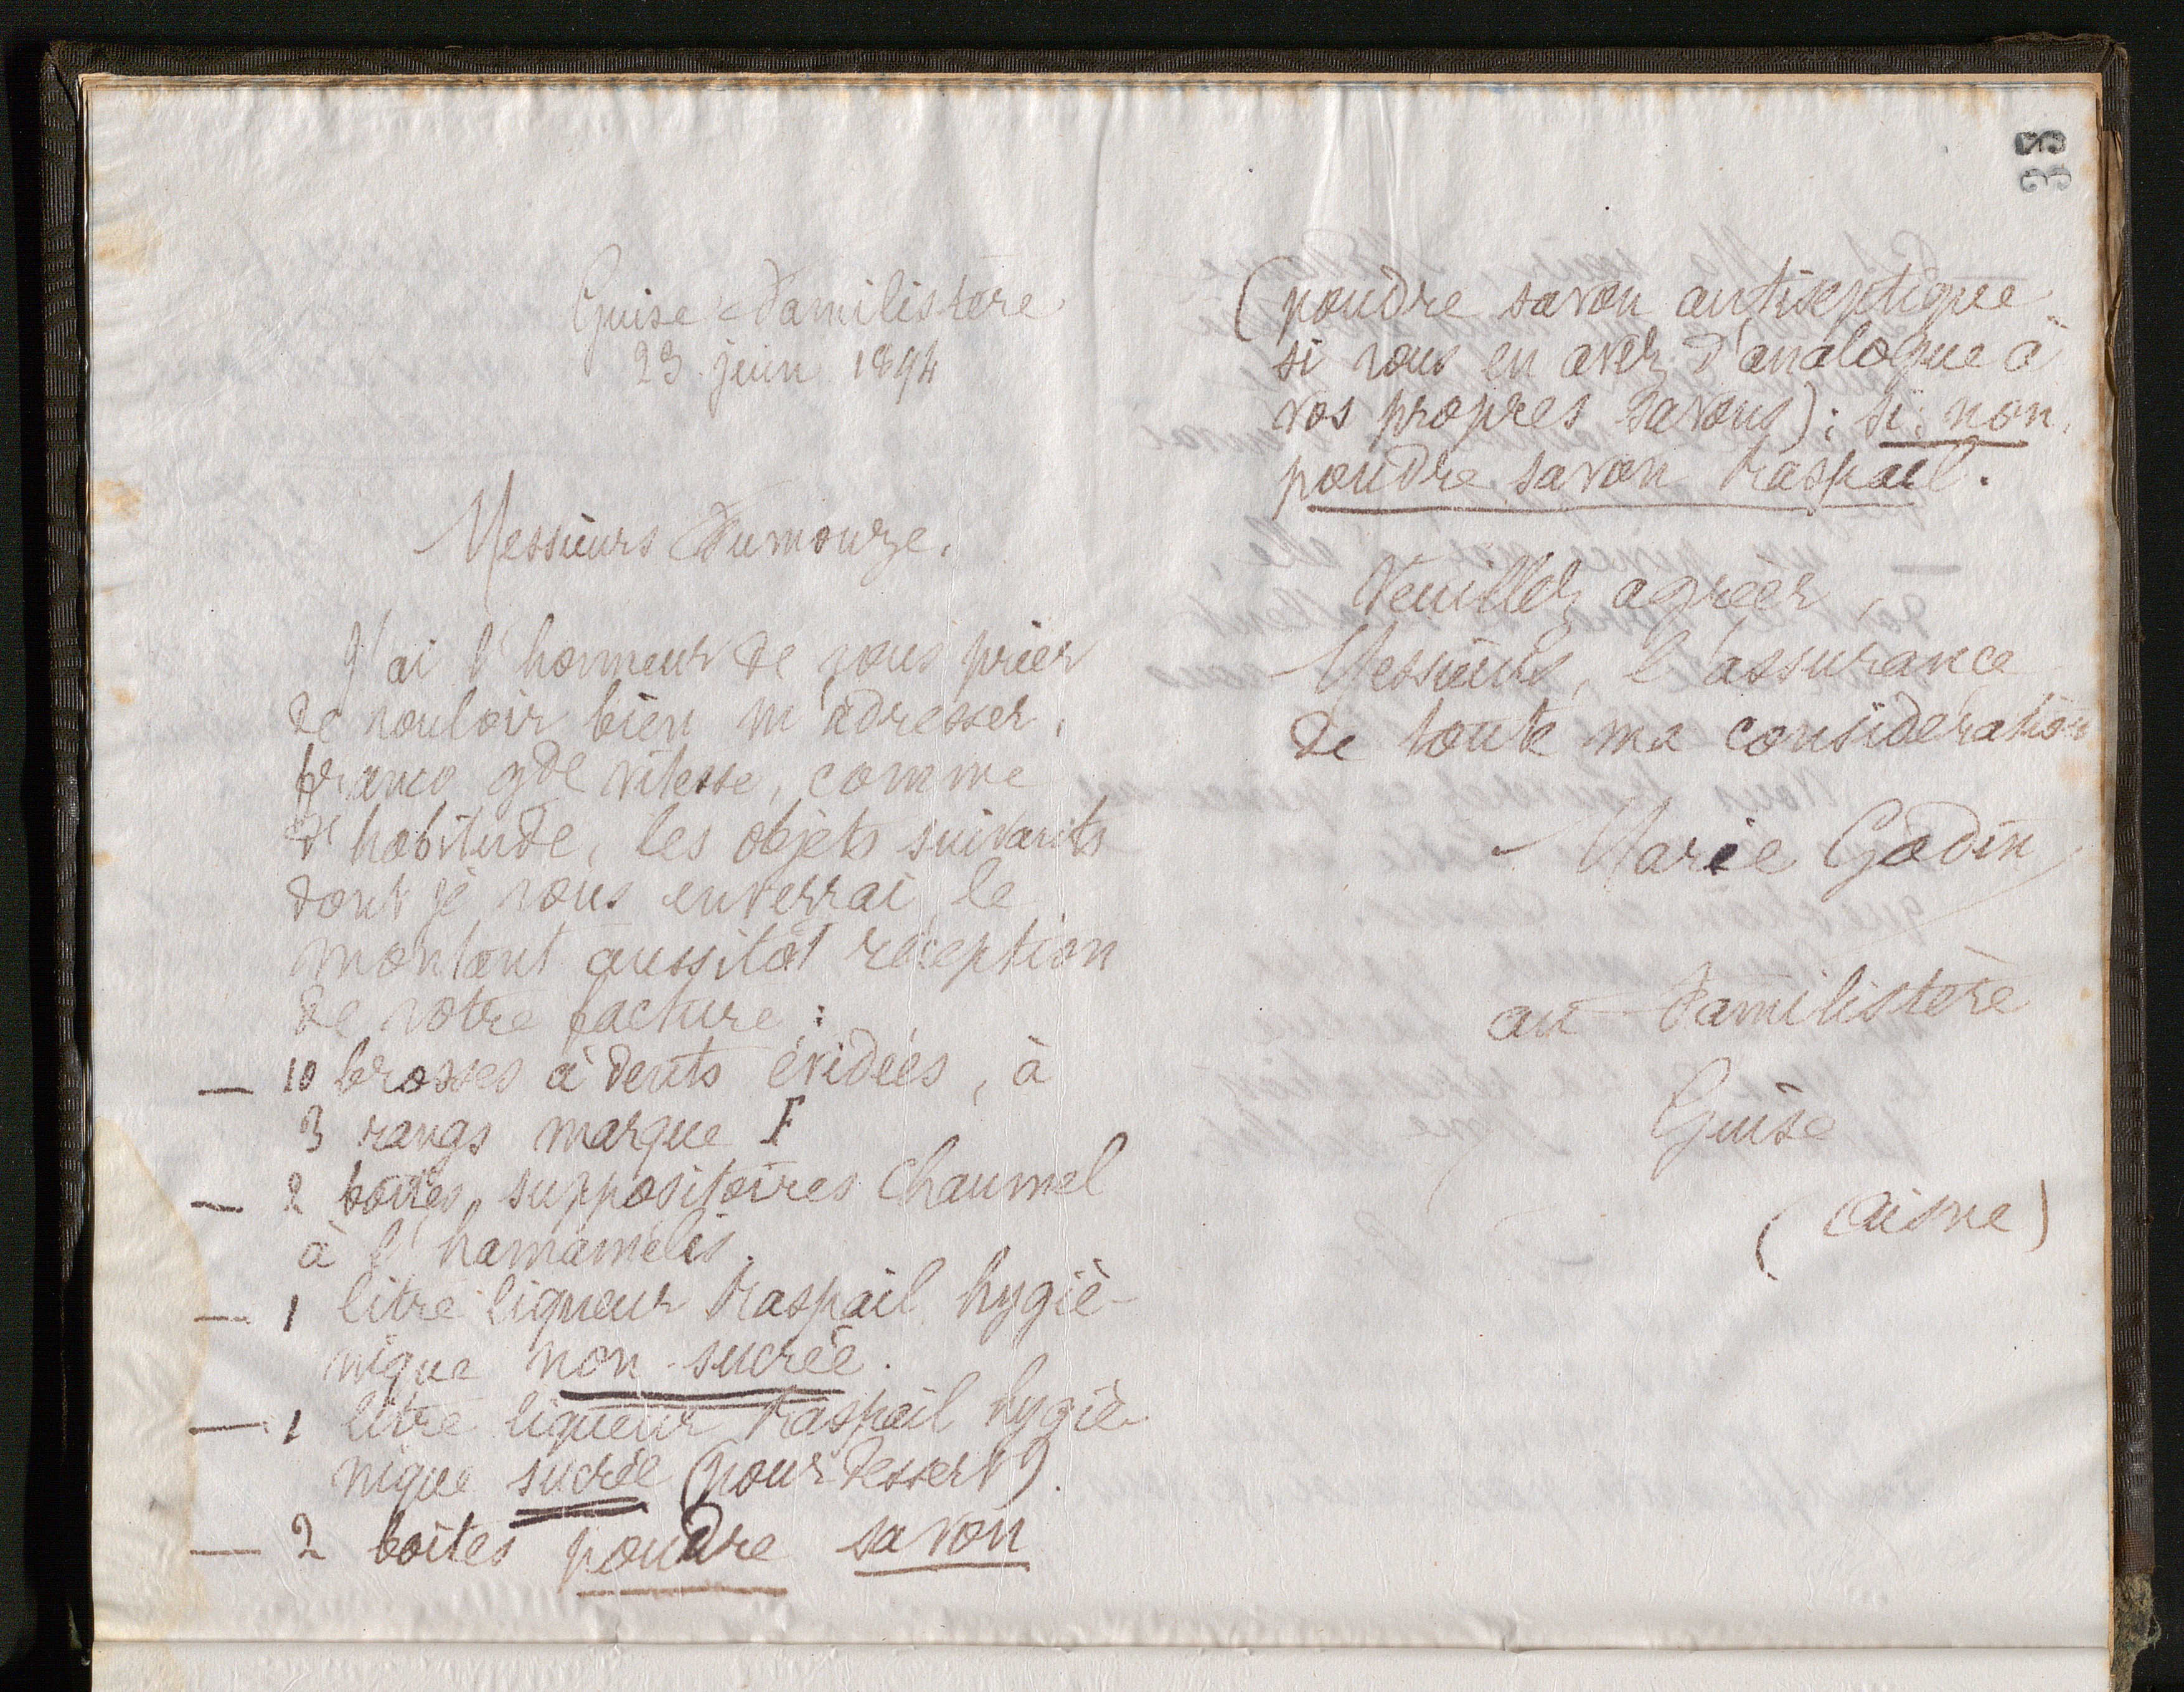 33
Guise Familistère
23 juin 1894
Messieurs Fumouze.
J'ai l'honneur de vous prier
de vouloir bien m'adresser,
franco gde vitesse, comme
d'habitude, les objets suivants
dont je vous enverrai le
montant aussitôt réception
de votre facture :
— 10 brosses à dents évidées, à
3 rangs marque F
— 2 boîtes suppositoires Chaumel
à l'hamamélis.
— 1 litre liqueur Raspail hygié-
nique non sucrée.
— 1 litre liqueur Raspail hygié-
nique sucrée (pour dessert).
— 2 boîtes poudre savon
(poudre savon antiseptique
si vous en avez d'analogue à
vos propres savons) ; si non,
poudre savon Raspail.
Veuillez agréer,
Messieurs, l'assurance
de toute ma considération
Marie Godin
au Familistère
Guise
(Aisne)